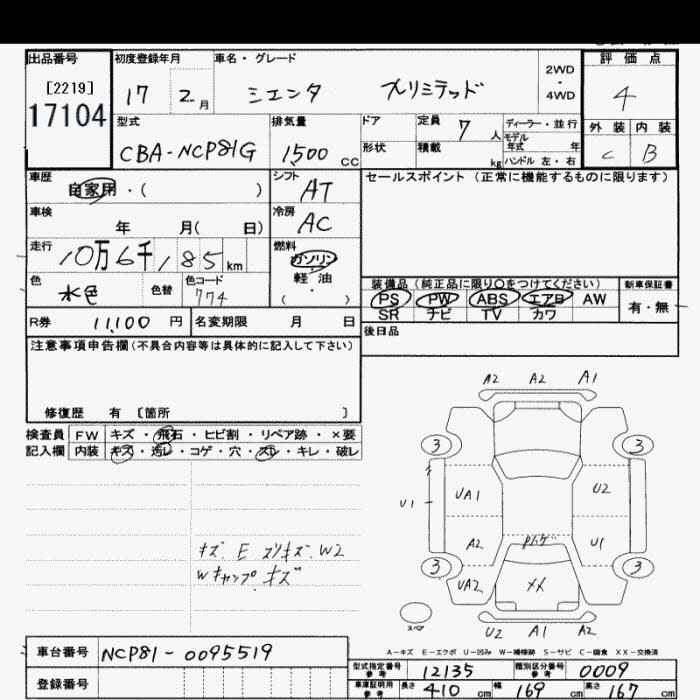 出品番号 初度登録年月 車名・グレード 2WD ・ 4WD 評価点
[2219]
17104
17 2月 シエンタ Xリミテッド 4
型式 排気量 ドア 定員 7人 ディーラー・並行 外装 内装
CBA-NCP81G 1500 CC 形状 積載 kg モデル年式 年 ハンドル 左・右 C B
車歴 自家用・( ) シフト AT セールスポイント (正常に機能するものに限ります)
車検 年 月( 日) 冷房 AC
走行 10万6千185 km 燃料 ガソリン
軽油
・( )
色 水色 色替 色コード 774
装備品 (純正品に限り○をつけてください) 新車保証書
PS PW ABS エアB AW 有・無
SR ナビ TV カワ
R券 11,100 円 名変期限 月 日 後日品
注意事項申告欄 (不具合内容等は具体的に記入して下さい)
修復歴 有 〔箇所 〕
検査員 FW キズ・飛石・ヒビ割・リペア跡・×要
記入欄 内装 キズ・汚レ・コゲ・穴・スレ・キレ・破レ
A2 A2 A1
3 3
U1 UA1 U2
A2 U1
3 3
UA2 XX
スペア
U2 A1 A2
キズ E スリキズ W2
Wキャップ キズ
A-キズ E-エクボ U-凹み W-補修跡 S-サビ C-腐食 XX-交換済
車台番号 NCP81-0095519
登録番号
型式指定番号 参考 12135 類別区分番号 参考 0009
車庫証明用 参考 長さ 410 cm 幅 169 cm 高さ 167 cm